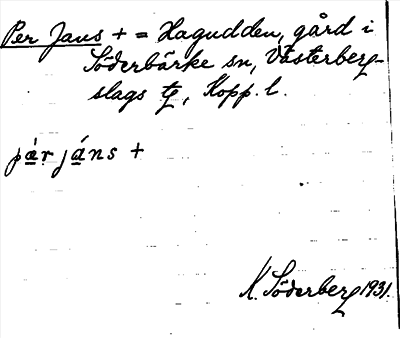 Per Jans + = Hagudden, gård i
Söderbärke sn, Västerberg-
slags tg, Kopp. l.
pär jáns +
K. Söderberg 1931.